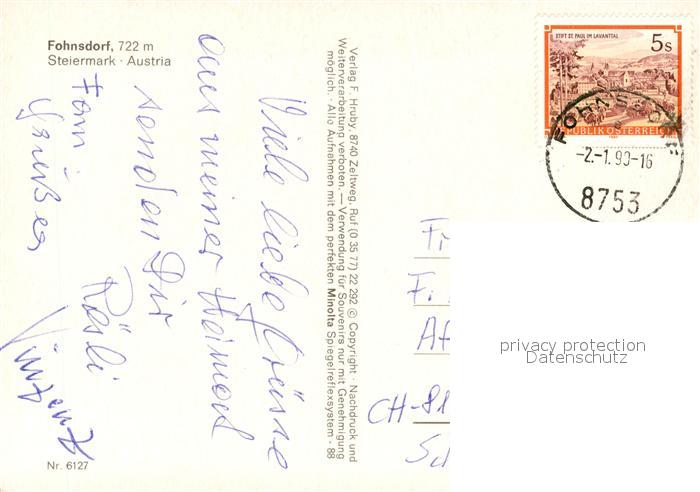 Fohnsdorf, 722 m
Steiermark · Austria
Viele liebe Grüsse
aus meiner Heimat
senden Dir
Fam
Rösli
Vinzenz
Nr. 6127
Verlag F. Hruby, 8740 Zeltweg, Ruf (0 35 77) 22 292 © Copyright · Nachdruck und
Weiterverarbeitung verboten. — Verwendung für Souvenirs nur mit Genehmigung
möglich. · Alle Aufnahmen mit dem perfekten Minolta Spiegelreflexsystem · 88
STIFT ST. PAUL IM LAVANTTAL
5 s
REPUBLIK ÖSTERREICH
FOHNSDORF
-2.-1.90-16
8753
Fr
F
CH-81
Sch
privacy protection
Datenschutz